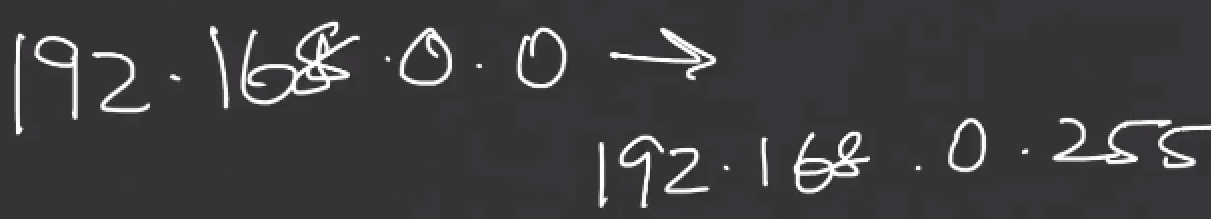 192.168.0.0 →
192.168.0.255